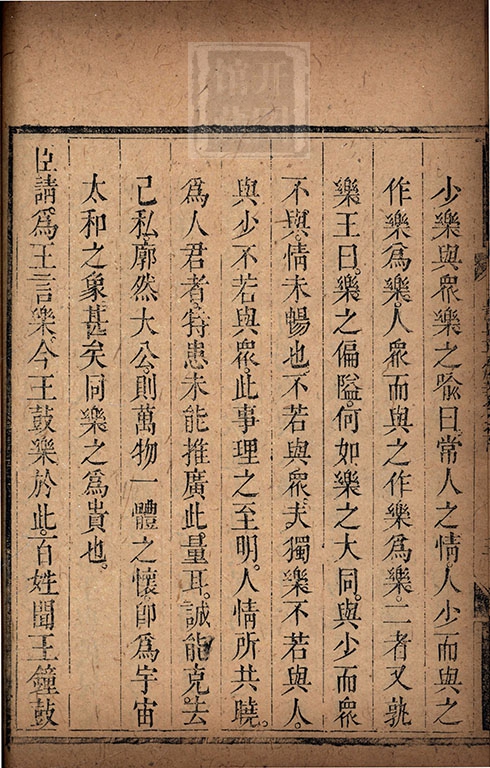 少樂與眾樂之喻曰常人之情人少而與之
作樂為樂人眾而與之作樂為樂二者又孰
樂王曰樂之偏隘何如樂之大同與少而眾
不與情未暢也不若與眾夫獨樂不若與人
與少不若與眾此事理之至明人情所共曉
為人君者特患未能推廣此量耳誠能克去
己私廓然大公則萬物一體之懷即為宇宙
太和之象甚矣同樂之為貴也
臣請為王言樂今王鼓樂於此百姓聞王鐘鼓